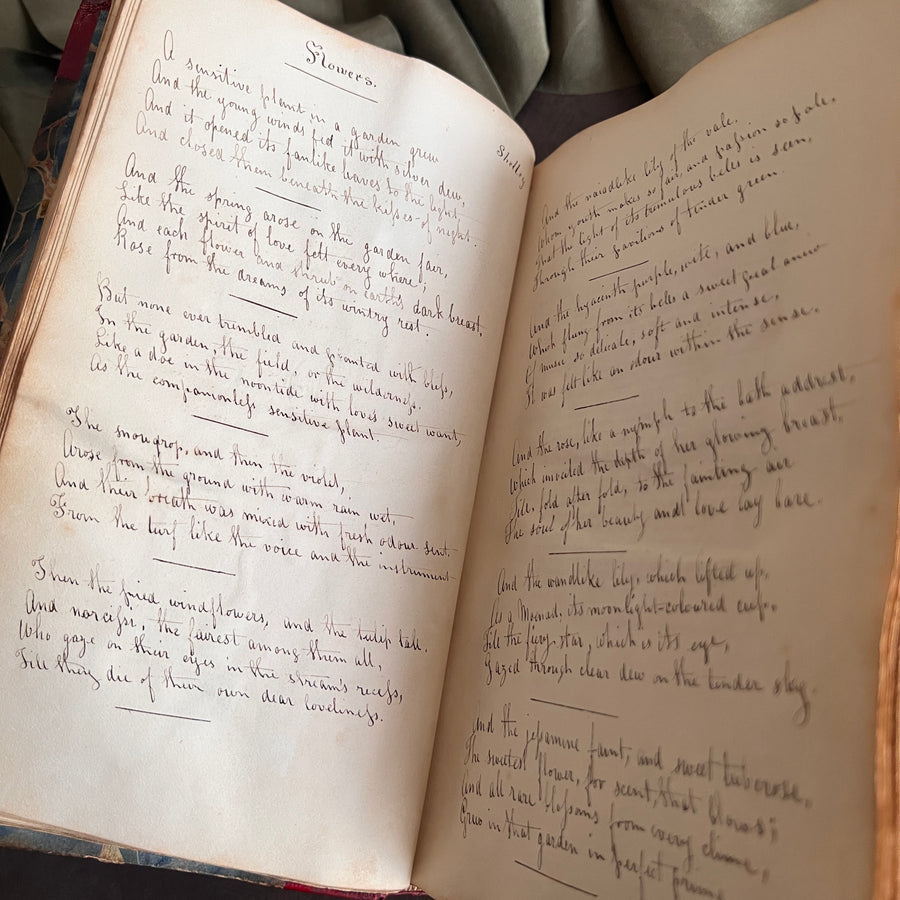 Flowers.
Shelley
A sensitive plant in a garden grew
And the young winds fed it with silver dew,
And it opened its fanlike leaves to the light,
And closed them beneath the kisses of night.
And the spring arose on the garden fair,
Like the spirit of love felt every where;
And each flower and shrub on earth's dark breast,
Rose from the dreams of its wintry rest.
But none ever trembled and panted with bliss,
In the garden, the field, or the wilderness.
Like a doe in the noontide with loves sweet want,
As the companionless sensitive plant.
The snowdrop, and then the violet,
Arose from the ground with warm rain wet,
And their breath was mixed with fresh odour sent.
From the turf like the voice and the instrument
Then the pied windflowers, and the tulip tall,
And narcissi, the fairest among them all,
Who gaze on their eyes in the stream's recess,
Till they die of their own dear loveliness.
And the naiadlike lily of the vale.
Whom youth makes so fair, and passion so pale,
That the light of its tremulous bells is seen,
Through their pavilions of tender green.
And the hyacinth purple, white, and blue,
Which flung from its bells a sweet peal anew
Of music so delicate, soft and intense,
It was felt like an odour within the sense.
And the rose, like a nymph to the bath addrest,
Which unveiled the depth of her glowing breast,
Till, fold after fold, to the fainting air
The soul of her beauty and love lay bare.
And the wandlike lily, which lifted up,
As a Moenad, its moonlight-coloured cup,
Till the fiery star, which is its eye,
Gazed through clear dew on the tender sky.
And the jessamine faint, and sweet tuberose,
The sweetest flower, for scent, that blows;
And all rare blossoms from every clime,
Grew in that garden in perfect prime